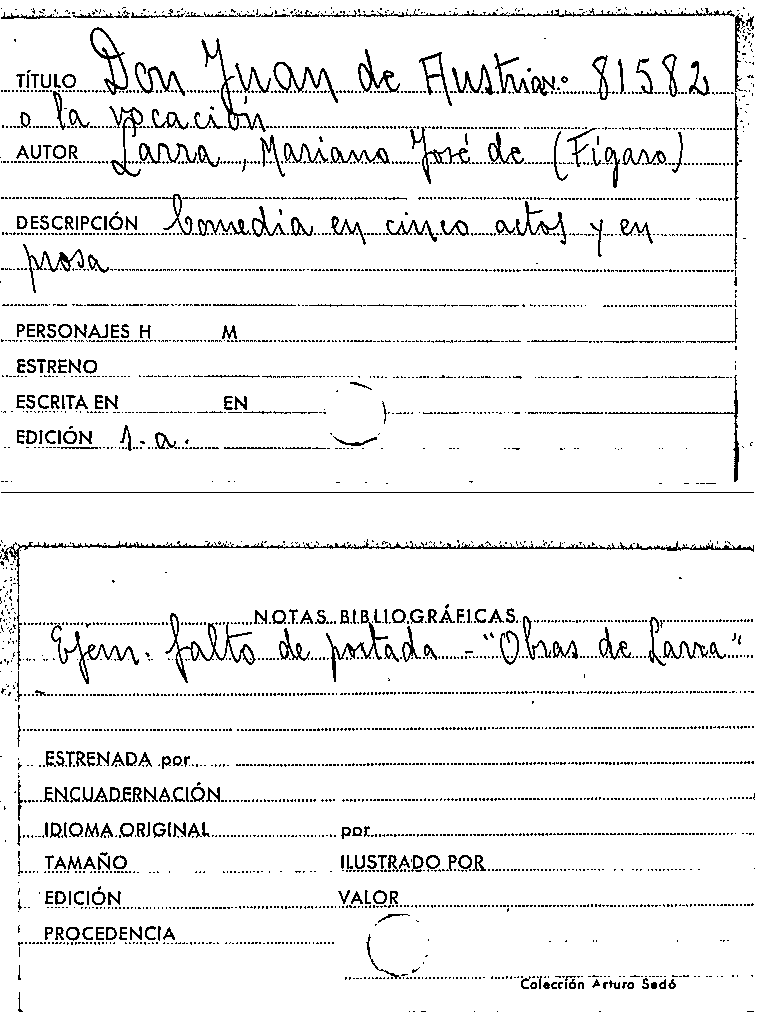 TÍTULO Don Juan de Austria n.º 81582
o la vocación
AUTOR Larra, Mariano José de (Fígaro)
DESCRIPCIÓN Comedia en cinco actos y en
prosa
PERSONAJES H M
ESTRENO
ESCRITA EN EN
EDICIÓN 1.a.
NOTAS BIBLIOGRÁFICAS
Ejem. falto de portada - "Obras de Larra"
ESTRENADA por
ENCUADERNACIÓN
IDIOMA ORIGINAL por
TAMAÑO ILUSTRADO POR
EDICIÓN VALOR
PROCEDENCIA
Colección Arturo Sedó